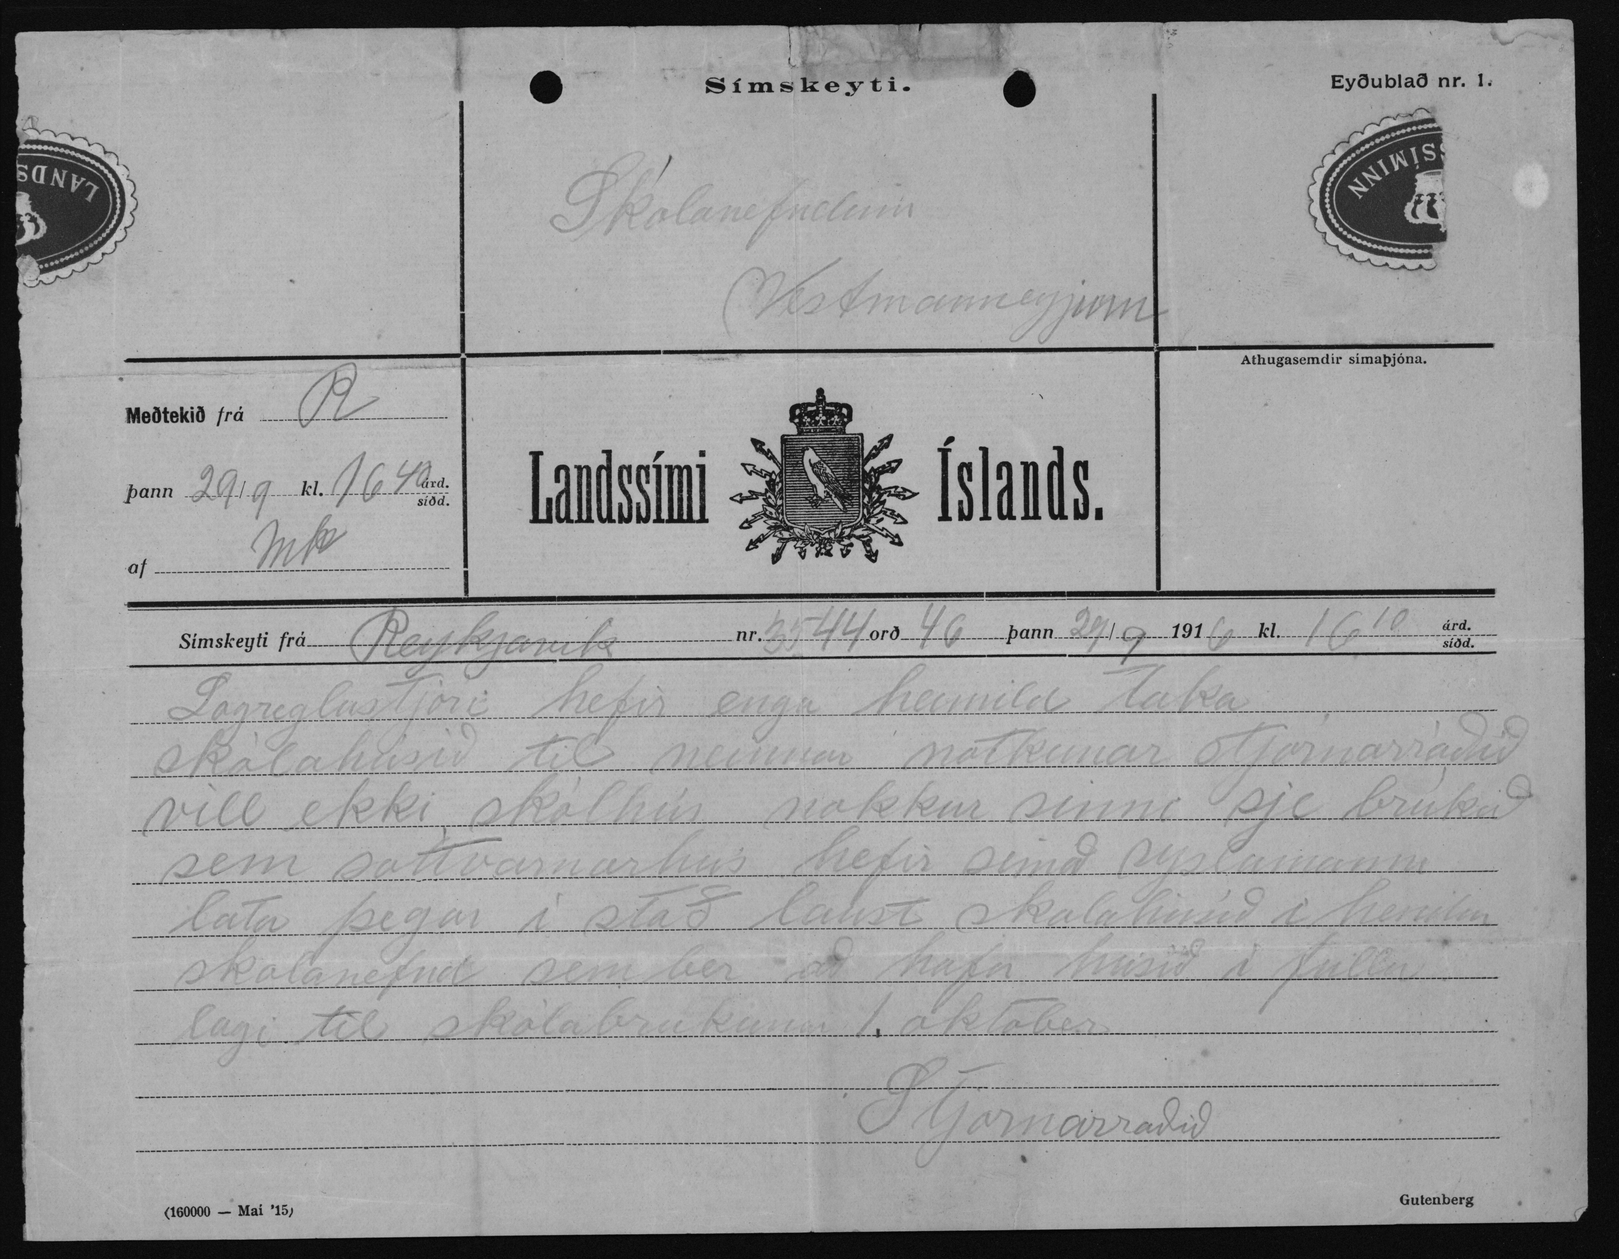 Símskeyti.
Eyðublað nr. 1.
LANDS
SSÍMINN
Skólanefndinni
Vestmanneyjum
Athugasemdir símaþjóna.
Meðtekið frá R
þann 29/9 kl. 16 40 árd. síðd.
af
Landssími Íslands.
Símskeyti frá Reykjavik nr. 3544 orð 46 þann 29/9 1916 kl. 16 10 árd. síðd.
Logreglustjóri hefir enga heimild taka
skólahúsið til neinnar notkunar stjórnarráðið
vill ekki skólhús nokkur sinne sje brúkað
sem sottvarnarhus hefir símað syslumann
lata þegar i stað laust skolahúsið i hendur
skolanefnd sem ber að hafa húsið i fullu
lagi til skólabrukunar 1. oktober
Stjornarraðið
(160000 — Mai '15)
Gutenberg